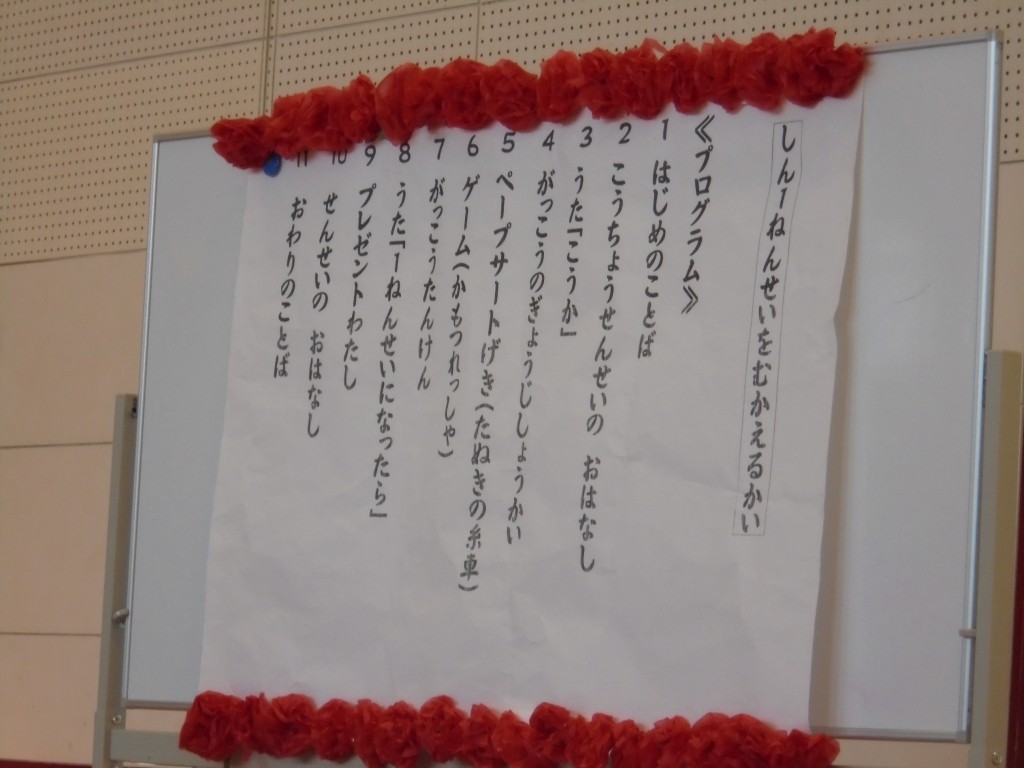 しん一ねんせいをむかえるかい
《プログラム》
1 はじめのことば
2 こうちょうせんせいの おはなし
3 うた「こうか」
4 がっこうのぎょうじしょうかい
5 ペープサートげき(たぬきの糸車)
6 ゲーム(かもつれっしゃ)
7 がっこうたんけん
8 うた「一ねんせいになったら」
9 プレゼントわたし
10 せんせいの おはなし
11 おわりのことば